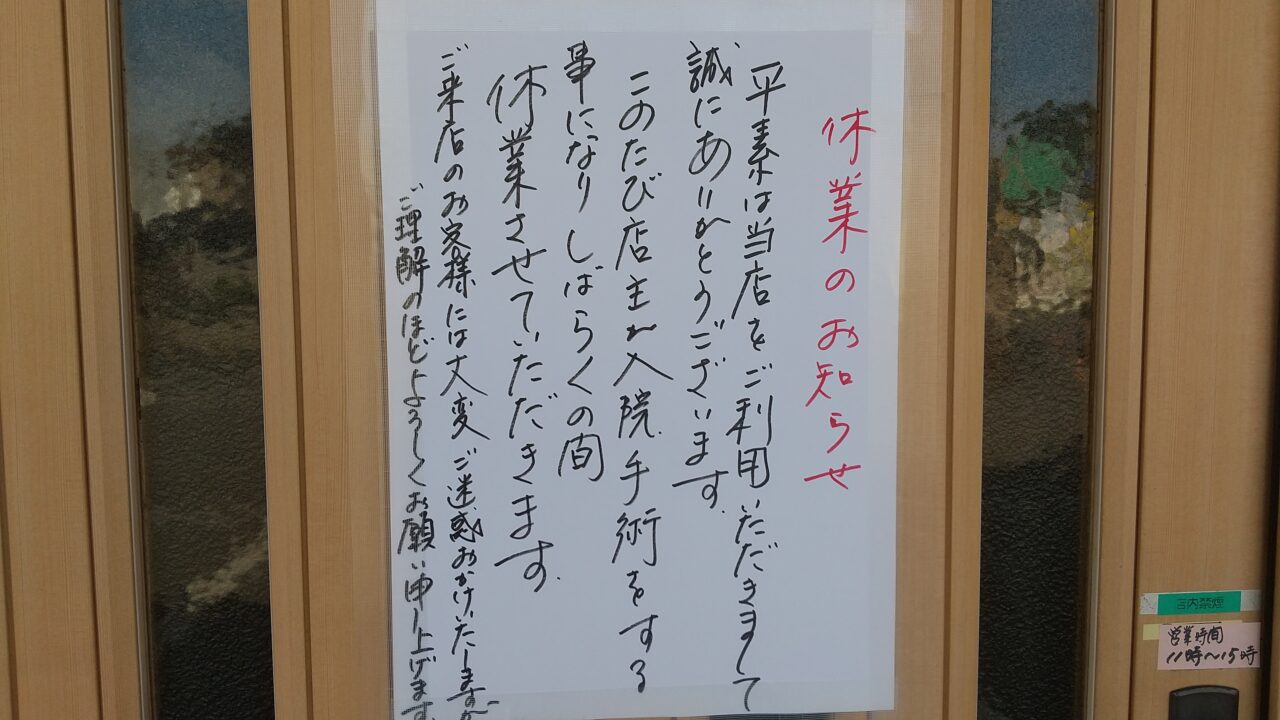 休業のお知らせ
平素は当店をご利用いただきまして
誠にありがとうございます。
このたび店主が入院、手術をする
事になりしばらくの間
休業させていただきます。
ご来店のお客様には大変ご迷惑おかけいたしますが
ご理解のほどよろしくお願い申し上げます。
宮内禁煙
営業時間
11時〜15時